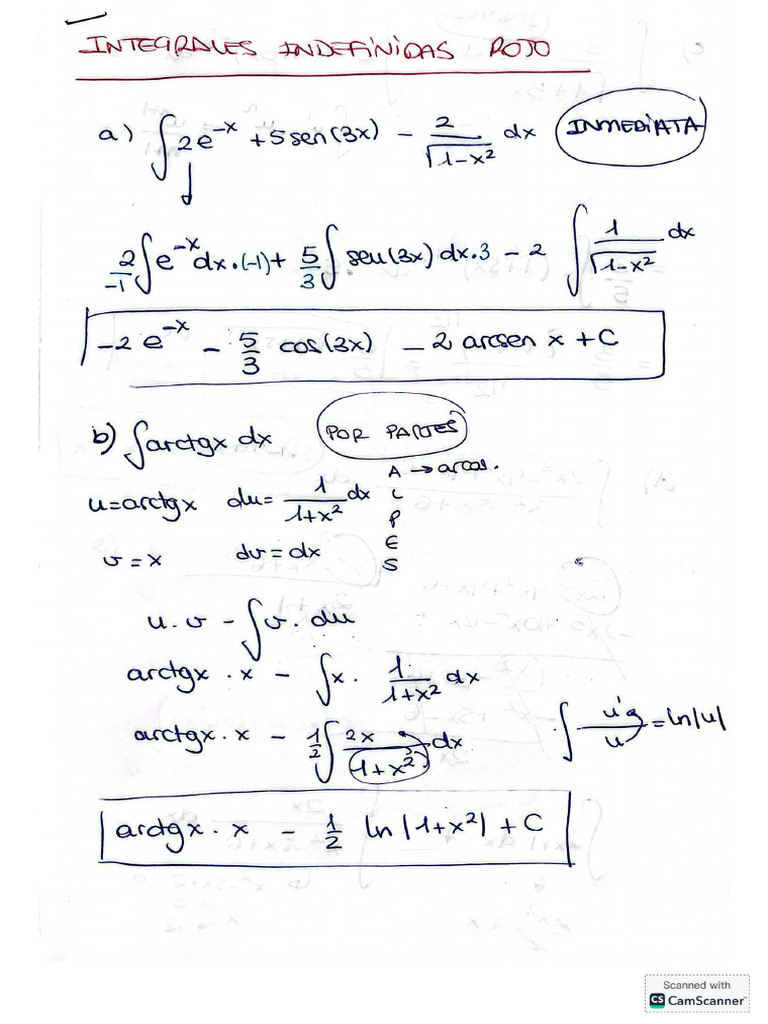 INTEGRALES INDEFINIDAS ROJO
a) ∫ 2e^{-x} + 5 sen(3x) - \frac{2}{\sqrt{1-x^2}} dx INMEDIATA
\frac{2}{-1} ∫ e^{-x} dx·(-1) + \frac{5}{3} ∫ sen(3x) dx·3 - 2 ∫ \frac{1}{\sqrt{1-x^2}} dx
-2e^{-x} - \frac{5}{3} cos(3x) - 2 arcsen x + C
b) ∫ arctgx dx POR PARTES
A → arcos.
u=arctgx du= \frac{1}{1+x^2} dx L
P
E
v = x dv = dx S
u.v - ∫ v. du
arctgx . x - ∫ x. \frac{1}{1+x^2} dx
arctgx . x - \frac{1}{2} ∫ \frac{2x}{1+x^2} dx ∫ \frac{u'}{u} = ln|u|
arctgx . x - \frac{1}{2} ln|1+x^2| + C
Scanned with
CS CamScanner